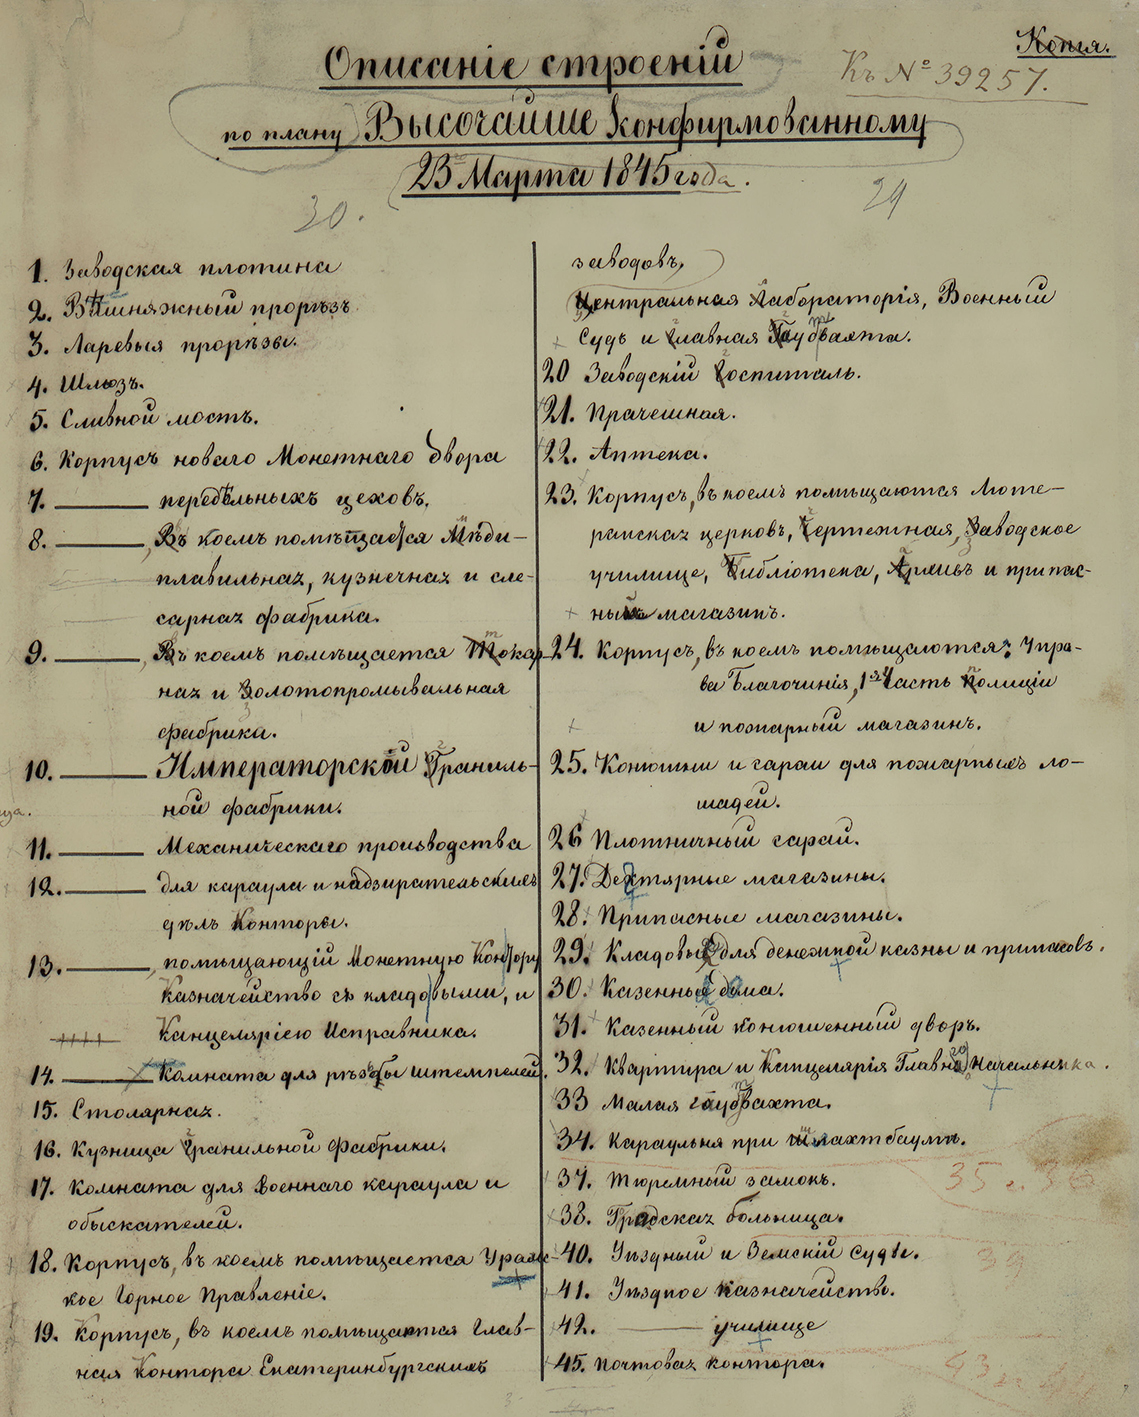 Копія.
Къ № 39257.
Описаніе строеній
по плану Высочайше конфирмованному
23 Марта 1845 года.
30.
29
1. Заводская плотина
2. Вишняжный прорѣзъ
3. Ларевыя прорѣзы.
4. Шлюзъ.
5. Сливной мостъ.
6. Корпусъ новаго Монетнаго двора
7. ——— передѣльныхъ цеховъ.
8. ———, въ коемъ помѣщается Мѣди-
плавильная, кузнечная и сле-
сарная фабрика.
9. ———, въ коемъ помѣщается токар-
ная и золотопромывальная
фабрика.
10. ——— Императорской граниль-
ной фабрики.
11. ——— Механическаго производства
12. ——— для караула и надзирательскихъ
дѣлъ Конторы.
13. ———, помѣщающій Монетную Контору
Казначейство съ кладовыми, и
Канцеляріею Исправника.
14. ——— Комната для рѣзьбы штемпелей.
15. Столярная.
16. Кузница гранильной фабрики.
17. Комната для военнаго караула и
обыскателей.
18. Корпусъ, въ коемъ помѣщается Уральс-
кое Горное Правленіе.
19. Корпусъ, въ коемъ помѣщается Глав-
ная Контора Екатеринбургскихъ
заводовъ,
Центральная Лабораторія, Военный
Судъ и главная Гаубвахта.
20 Заводскій госпиталь.
21. Прачешная.
22. Аптека.
23. Корпусъ, въ коемъ помѣщаются Люте-
ранская церковь, чертежная, заводское
училище, библіотека, архивъ и припас-
ный магазинъ.
24. Корпусъ, въ коемъ помѣщаются: Упра-
ва Благочинія, 1ая Часть полиціи
и пожарный магазинъ.
25. Конюшни и сараи для пожарныхъ ло-
шадей.
26 Плотничный сарай.
27. Дехтярные магазины.
28. Припасные магазины.
29. Кладовыя для денежной казны и припасовъ.
30. Казенные дома.
31. Казенный конюшенный дворъ.
32. Квартира и Канцелярія Главнаго Начальника.
33 Малая гауbвахта.
34. Караульня при шлахтбаумѣ.
35 и 36
37. Тюремный замокъ.
38. Градская больница.
39
40. Уѣздный и Земскій суды.
41. Уѣздное казначейство.
42. ——— училище
43 и 44
45. Почтовая контора.